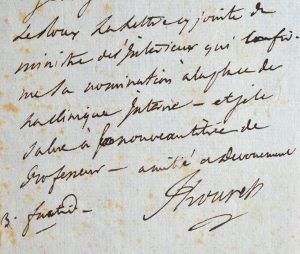 Leroux La lettre cy jointe de
ministre de l'Interieur qui confir-
me sa nomination à la place de
La clinique Interne - et je le
salue à son nouveau titre de
Professeur - amitié et Devouement
3. fructid -
Thouret